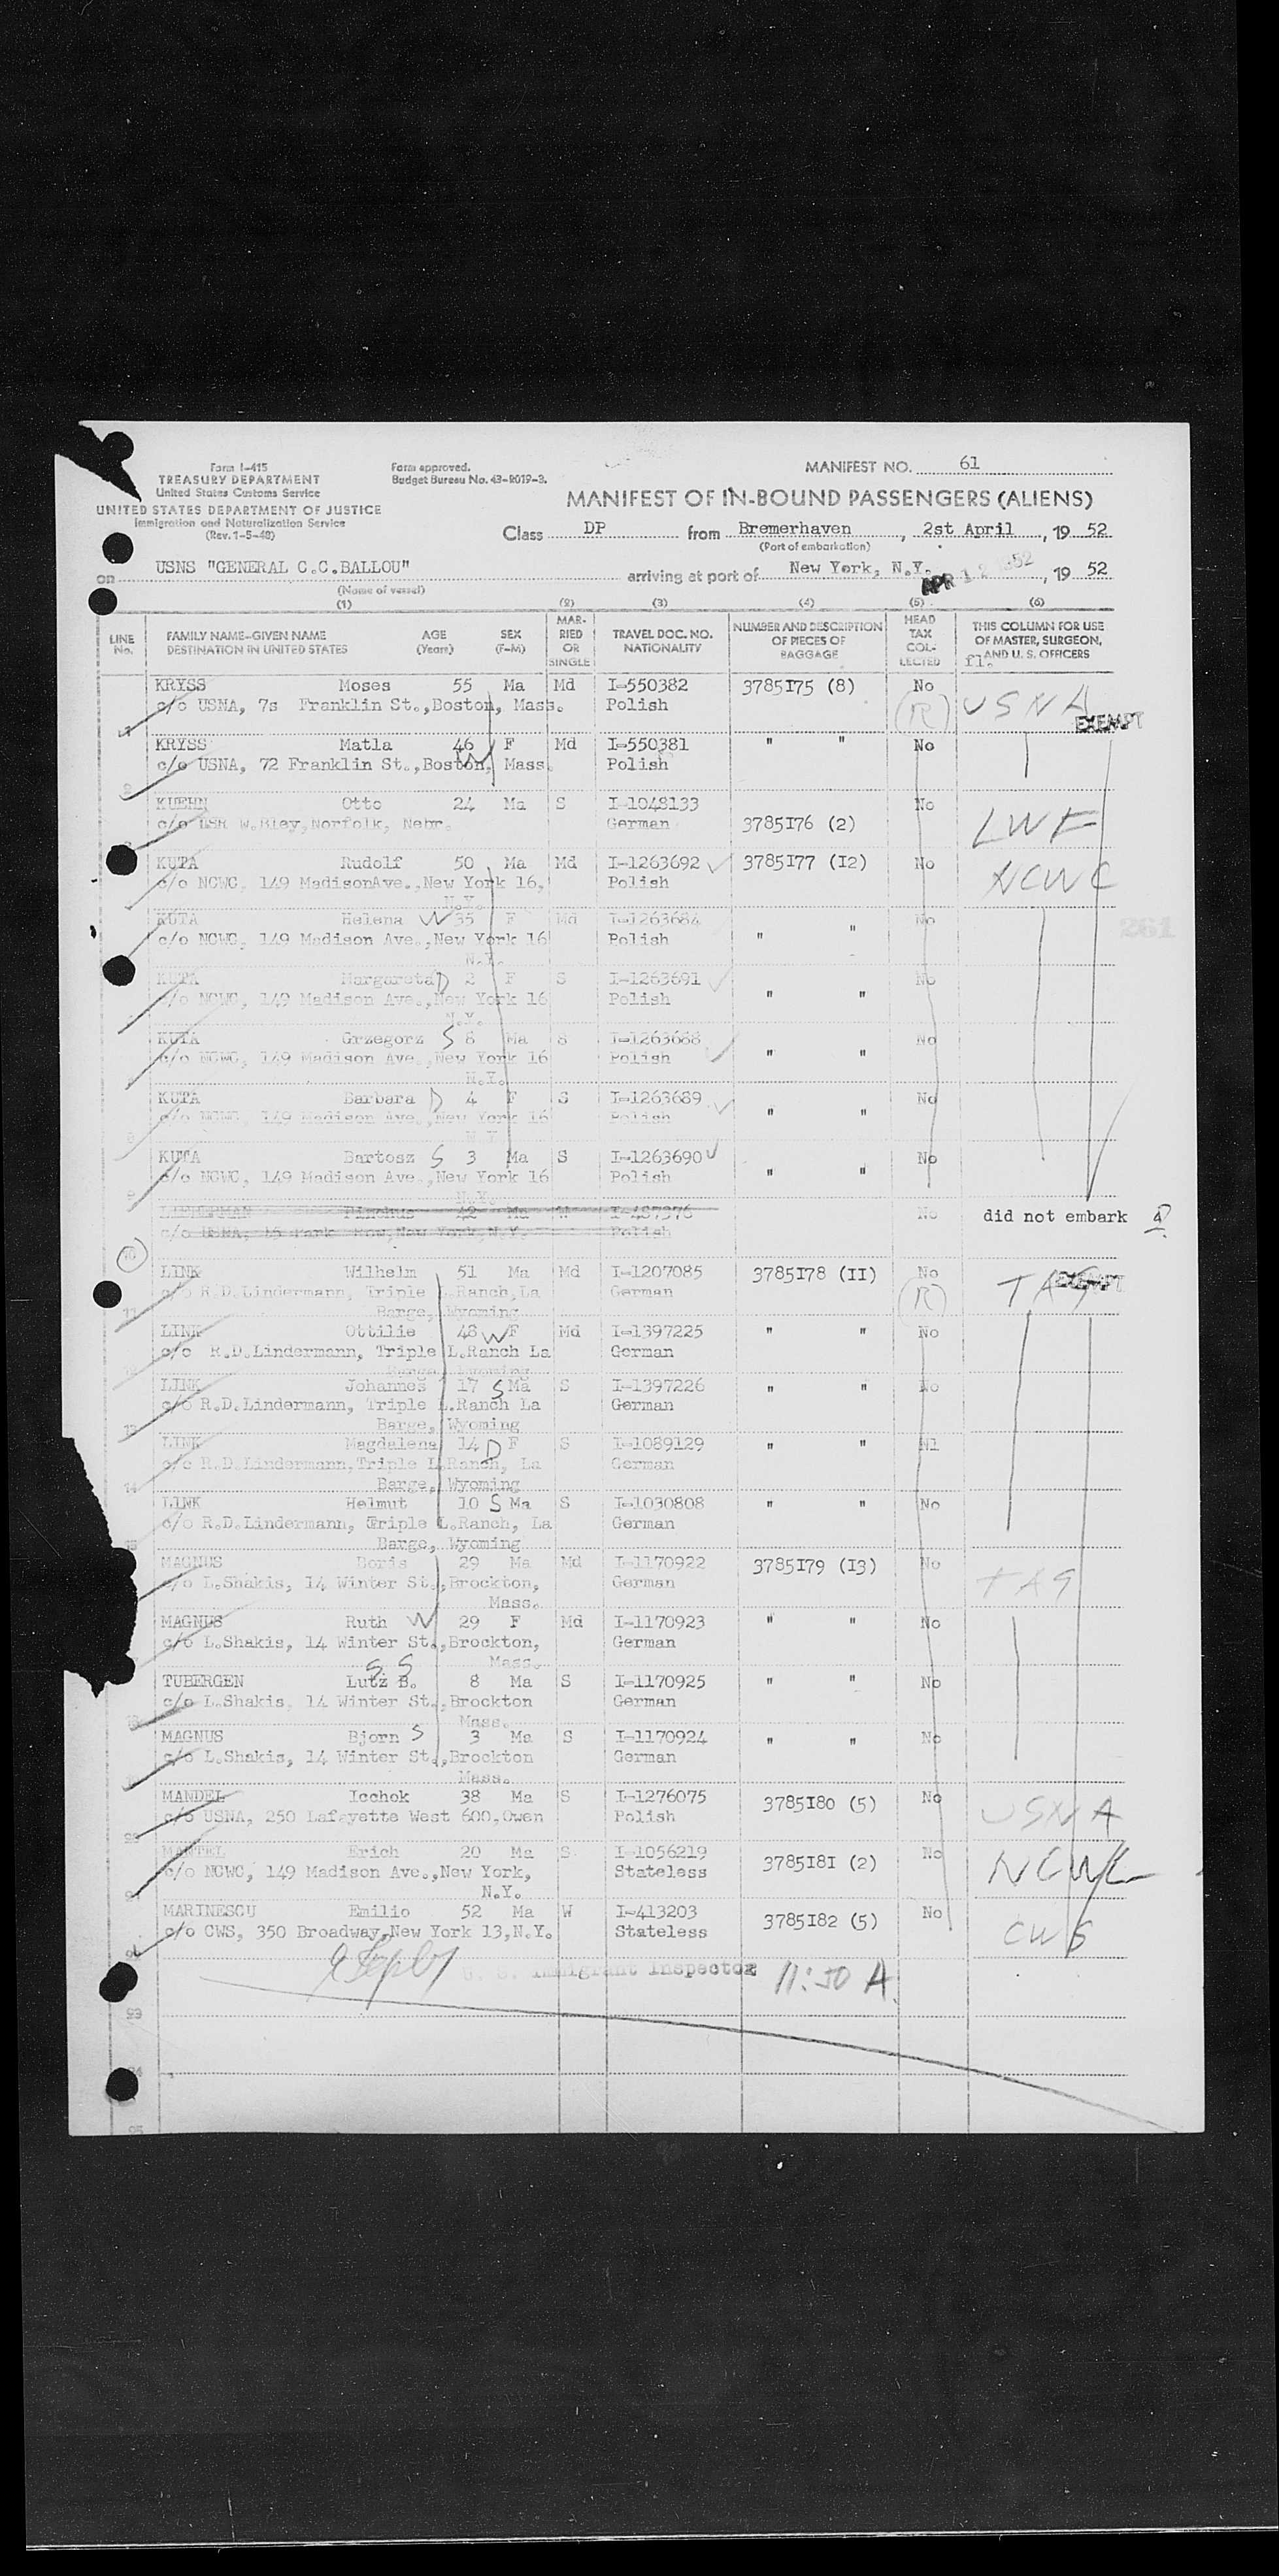 Form I-415
TREASURY DEPARTMENT
United States Customs Service
UNITED STATES DEPARTMENT OF JUSTICE
Immigration and Naturalization Service
(Rev. 1-5-48)
Form approved.
Budget Bureau No. 43-R019-3.
MANIFEST NO. 61
MANIFEST OF IN-BOUND PASSENGERS (ALIENS)
Class DP from Bremerhaven, 2st April, 19 52
(Port of embarkation)
on USNS "GENERAL C.C.BALLOU" arriving at port of New York, N.Y., 19 52
APR 12 1952
(Name of vessel)
(1) (2) (3) (4) (5) (6)
LINE No. FAMILY NAME-GIVEN NAME DESTINATION IN UNITED STATES AGE (Years) SEX (F-M) MAR-RIED OR SINGLE TRAVEL DOC. NO. NATIONALITY NUMBER AND DESCRIPTION OF PIECES OF BAGGAGE HEAD TAX COL-LECTED THIS COLUMN FOR USE OF MASTER, SURGEON, AND U. S. OFFICERS
fl.
KRYSS Moses 55 Ma Md I-550382 3785I75 (8) No
c/o USNA, 7s Franklin St.,Boston, Mass. Polish (R) USNA EXEMPT
KRYSS Matla 46 F Md I-550381 " " No
c/o USNA, 72 Franklin St.,Boston, Mass. Polish
W
2
KUEHN Otto 24 Ma S I-1048133 No
c/o W.Bley,Norfolk, Nebr. German 3785I76 (2) LWF
KUTA Rudolf 50 Ma Md I-1263692 3785I77 (I2) No
c/o NCWC, 149 MadisonAve.,New York 16, Polish NCWC
N.Y.
KUTA Helena W 35 F Md I-1263684 No
c/o NCWC, 149 Madison Ave.,New York 16 Polish " "
N.Y.
261
KUTA Margareta D 2 F S I-1263691 No
c/o NCWC, 149 Madison Ave.,New York 16 Polish " "
N.Y.
KUTA Grzegorz S 8 Ma S I-1263688 No
c/o NCWC, 149 Madison Ave.,New York 16 Polish " "
N.Y.
KUTA Barbara D 4 F S I-1263689 No
c/o NCWC, 149 Madison Ave.,New York 16 Polish " "
N.Y.
KUTA Bartosz S 3 Ma S I-1263690 No
c/o NCWC, 149 Madison Ave.,New York 16 Polish " "
9
N.Y.
Pinchus 42 Ma I-487376 No did not embark
c/o USNA, 15 Park Row,New York,N.Y. Polish
10
LINK Wilhelm 51 Ma Md I-1207085 3785I78 (II) No
c/o R.D.Lindermann, Triple L.Ranch,La German (R) EXEMPT
Barge, Wyoming
11
LINK Ottilie 48 W F Md I-1397225 " " No
c/o R.D.Lindermann, Triple L.Ranch La German
Barge, Wyoming
LINK Johannes 17 S Ma S I-1397226 " " No
c/o R.D.Lindermann, Triple L.Ranch La German
Barge, Wyoming
13
LINK Magdalena 14 D F S I-1089129 " " N1
c/o R.D.Lindermann,Triple L.Ranch, La German
Barge, Wyoming
14
LINK Helmut 10 S Ma S I-1030808 " " No
c/o R.D.Lindermann, Triple L.Ranch, La German
Barge, Wyoming
MAGNUS Boris 29 Ma Md I-1170922 3785I79 (I3) No
c/o L.Shakis, 14 Winter St.,Brockton, German
Mass.
MAGNUS Ruth W 29 F Md I-1170923 " " No
c/o L.Shakis, 14 Winter St.,Brockton, German
Mass.
S S
TUBERGEN Lutz B. 8 Ma S I-1170925 " " No
c/o L.Shakis, 14 Winter St.,Brockton German
Mass.
MAGNUS Bjorn S 3 Ma S I-1170924 " " No
c/o L.Shakis, 14 Winter St.,Brockton German
Mass.
MANDEL Icchok 38 Ma S I-1276075 3785I80 (5) No
c/o USNA, 250 Lafayette West 600,Owen Polish USNA
MANTEL Erich 20 Ma S I-1056219 3785I8I (2) No
c/o NCWC, 149 Madison Ave.,New York, Stateless NCWC
N.Y.
MARINESCU Emilio 52 Ma W I-413203 3785I82 (5) No
c/o CWS, 350 Broadway,New York 13,N.Y. Stateless CWS
U. S. Immigrant Inspector 11:50 A.
23
24
25